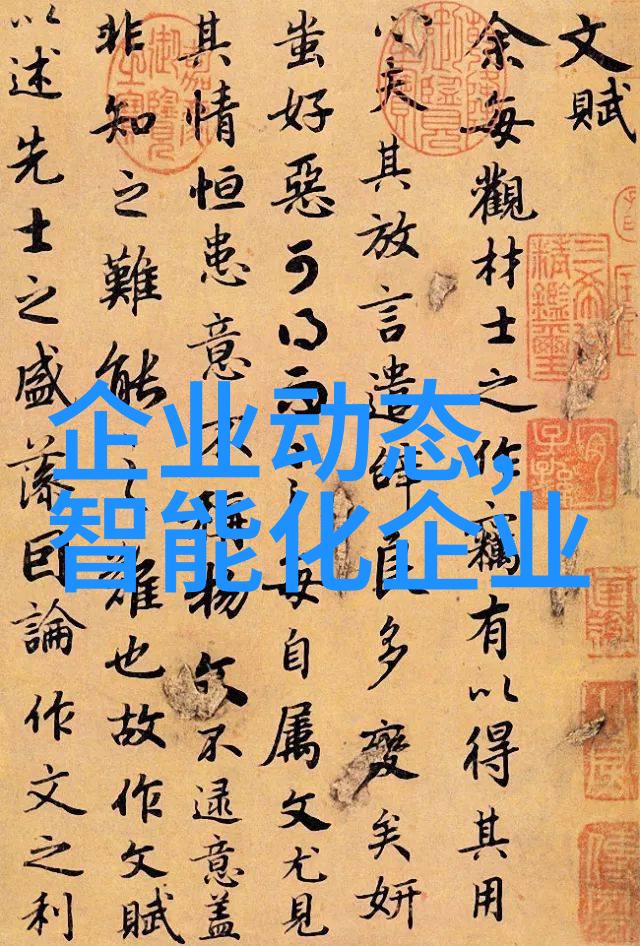 文賦
余每觀材士之作竊有以得其用
心夫其放言遣辭良多變矣妍
蚩好惡可得而言每自属文尤見
其情恒患意不稱物文不逮意盖
非知之難能之難也故作文賦
以述先士之盛藻因論作文之利
企业动态,
智能化企业
三希堂
精鑑璽
宜
子孫